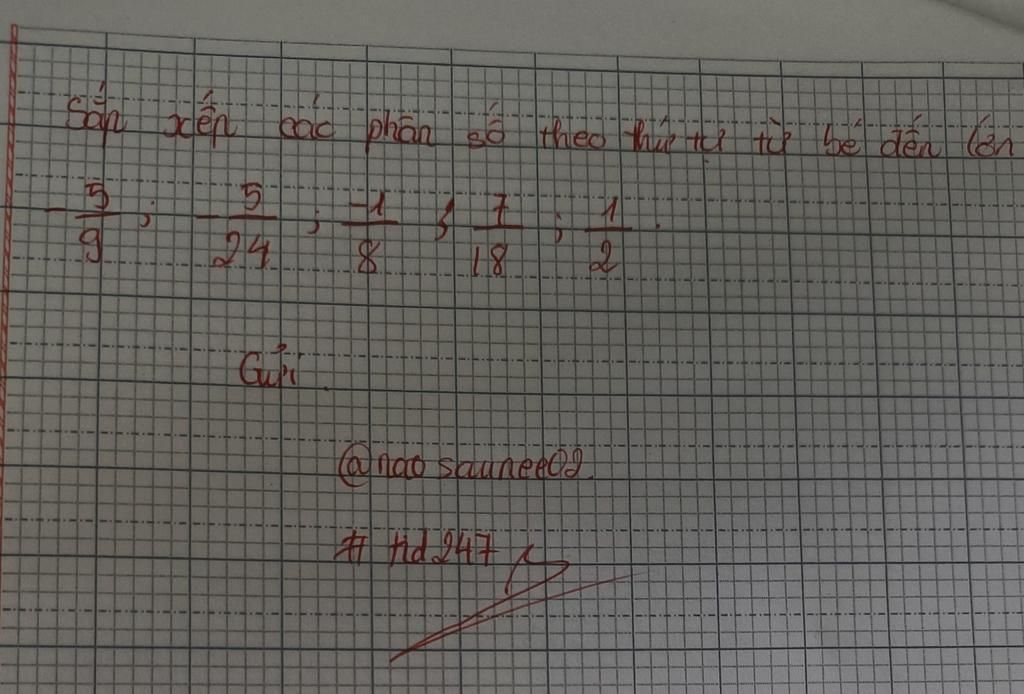 Sắp xếp các phân số theo thứ tự từ bé đến lớn
-5/9 ; -5/24 ; -1/8 ; 7/18 ; 1/2 .
Gửi
@naosaunee02.
# hd247